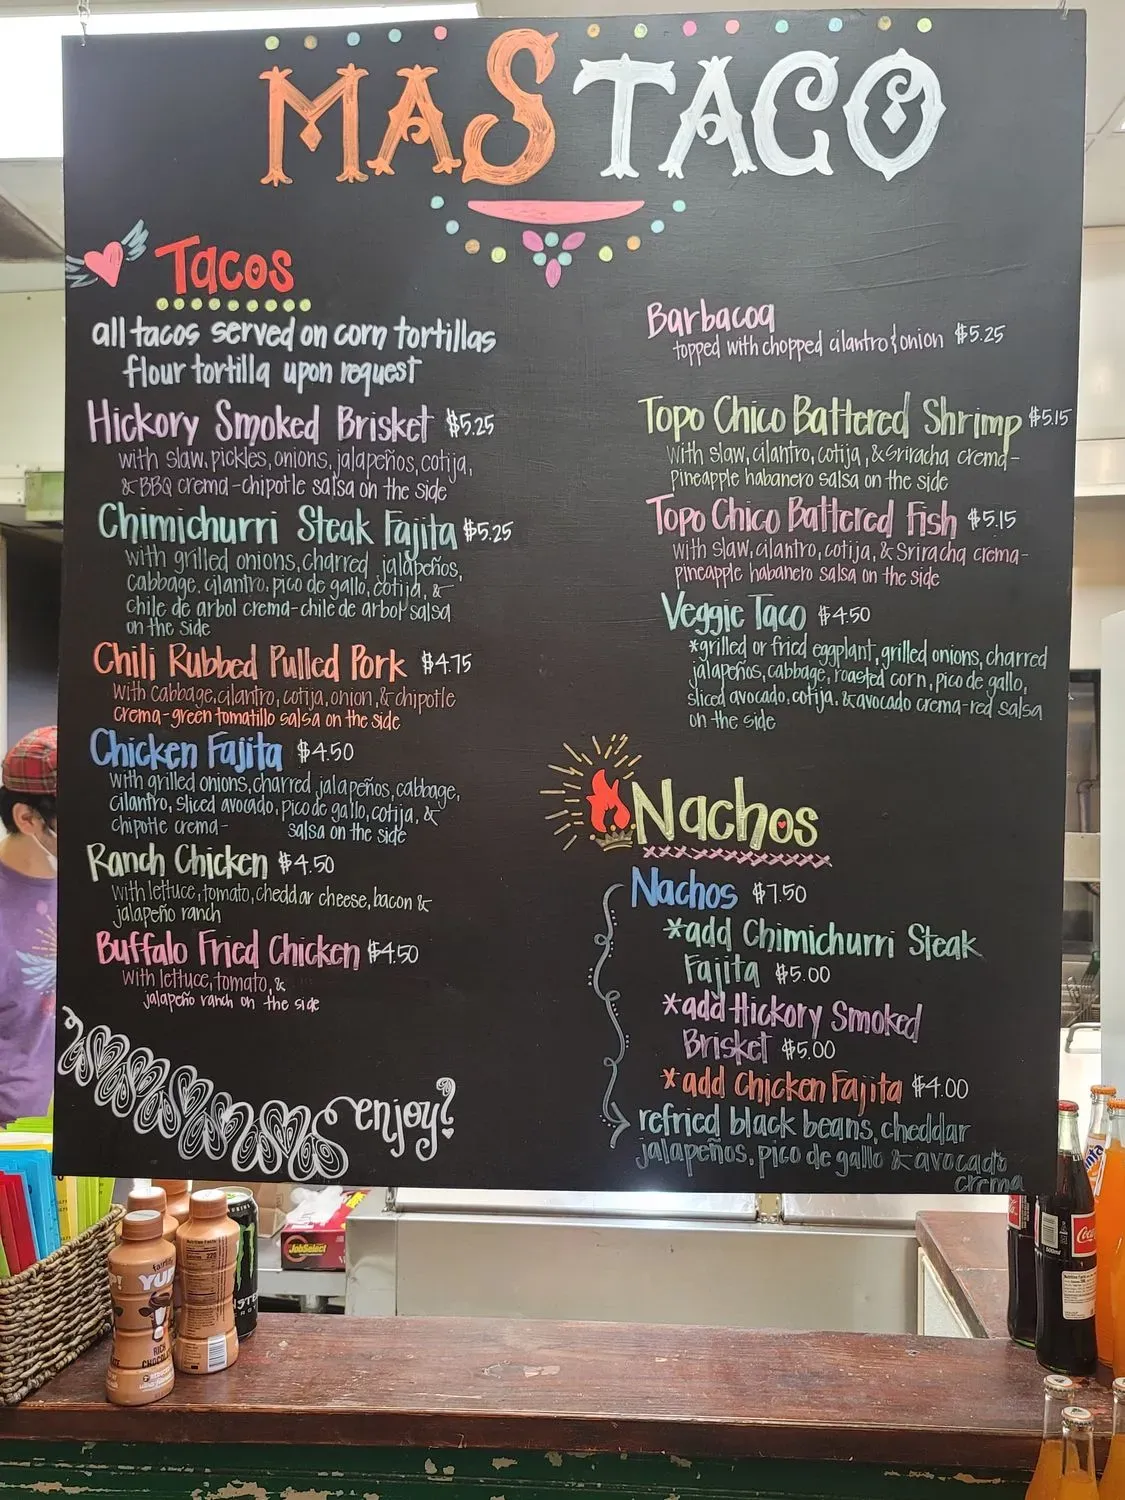 MAS TACO
Tacos
all tacos served on corn tortillas
flour tortilla upon request
Hickory Smoked Brisket $5.25
with slaw, pickles, onions, jalapeños, cotija,
& BBQ crema-chipotle salsa on the side
Chimichurri Steak Fajita $5.25
with grilled onions, charred jalapeños,
cabbage, cilantro, pico de gallo, cotija, &
chile de arbol crema-chile de arbol salsa
on the side
Chili Rubbed Pulled Pork $4.75
with cabbage, cilantro, cotija, onion, & chipotle
crema-green tomatillo salsa on the side
Chicken Fajita $4.50
with grilled onions, charred jalapeños, cabbage,
cilantro, sliced avocado, pico de gallo, cotija, &
chipotle crema- salsa on the side
Ranch Chicken $4.50
with lettuce, tomato, cheddar cheese, bacon &
jalapeño ranch
Buffalo Fried Chicken $4.50
with lettuce, tomato, &
jalapeño ranch on the side
enjoy!
Barbacoa
topped with chopped cilantro & onion $5.25
Topo Chico Battered Shrimp $5.15
with slaw, cilantro, cotija, & Sriracha crema-
pineapple habanero salsa on the side
Topo Chico Battered Fish $5.15
with slaw, cilantro, cotija, & Sriracha crema-
pineapple habanero salsa on the side
Veggie Taco $4.50
*grilled or fried eggplant, grilled onions, charred
jalapeños, cabbage, roasted corn, pico de gallo,
sliced avocado, cotija, & avocado crema-red salsa
on the side
Nachos
Nachos $7.50
*add Chimichurri Steak
Fajita $5.00
*add Hickory Smoked
Brisket $5.00
*add Chicken Fajita $4.00
refried black beans, cheddar
jalapeños, pico de gallo & avocado
crema
JobSelect
YUP!
RICH
CHOCOLATE